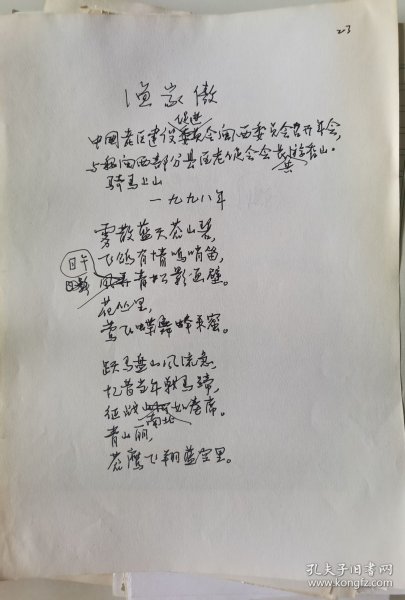 23
渔家傲
促进
中国老区建设委员会闽西委员会召开年会,
与程闽西部分县区老促会会长游苍山。
共
骑马上山
一九九八年
雾散蓝天苍山碧,
飞鸽有情鸣哨笛,
日午
青松影画壁。
花丛里,
莺飞蝶舞蜂采蜜。
跃马盘山风流急,
忆昔当年战马蹄,
征战如卷席。
南北
青山丽,
苍鹰飞翔蓝空里。
孔夫子旧书网